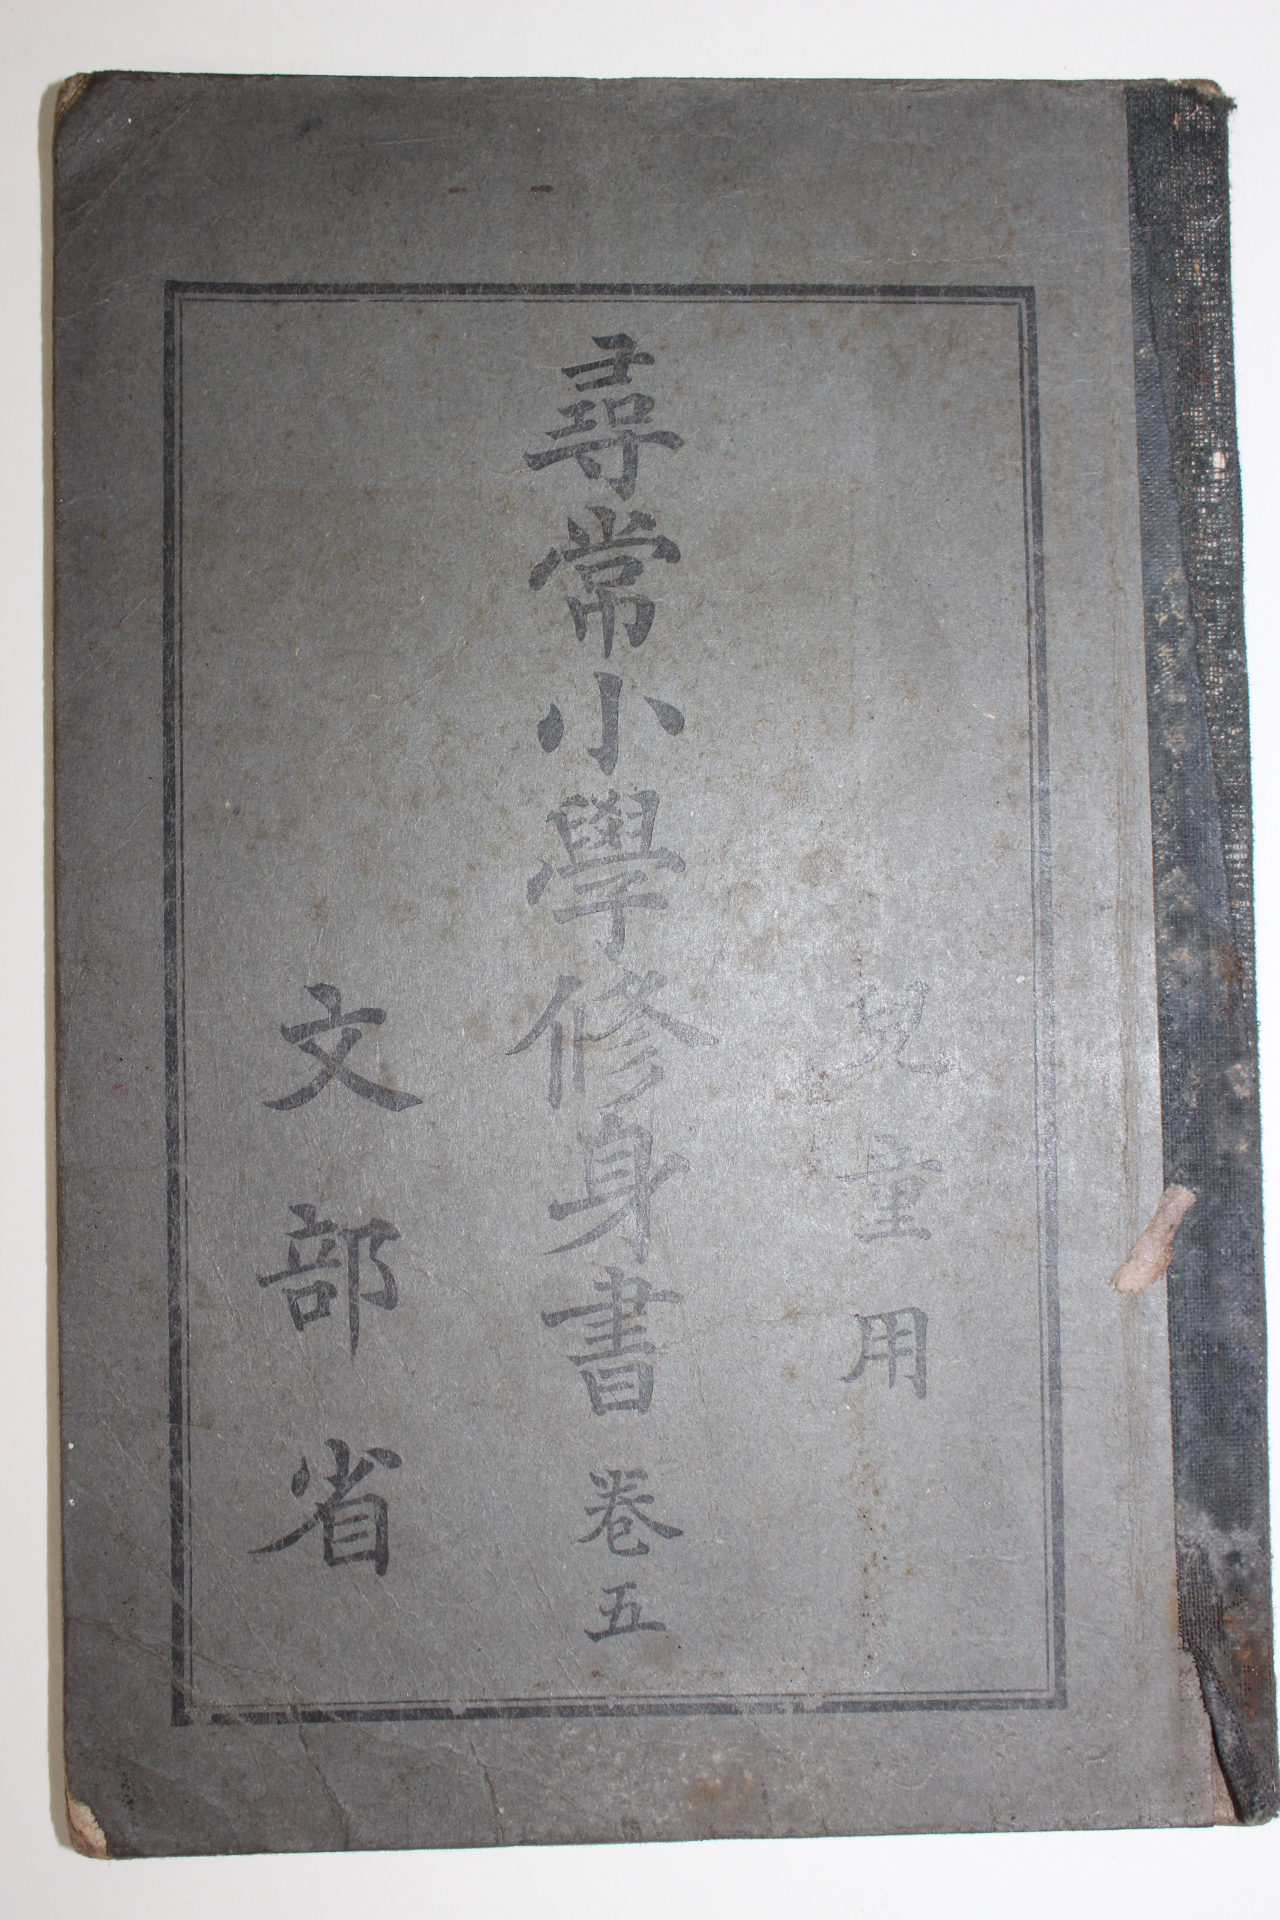 兒童用
尋常小學修身書 卷五
文部省